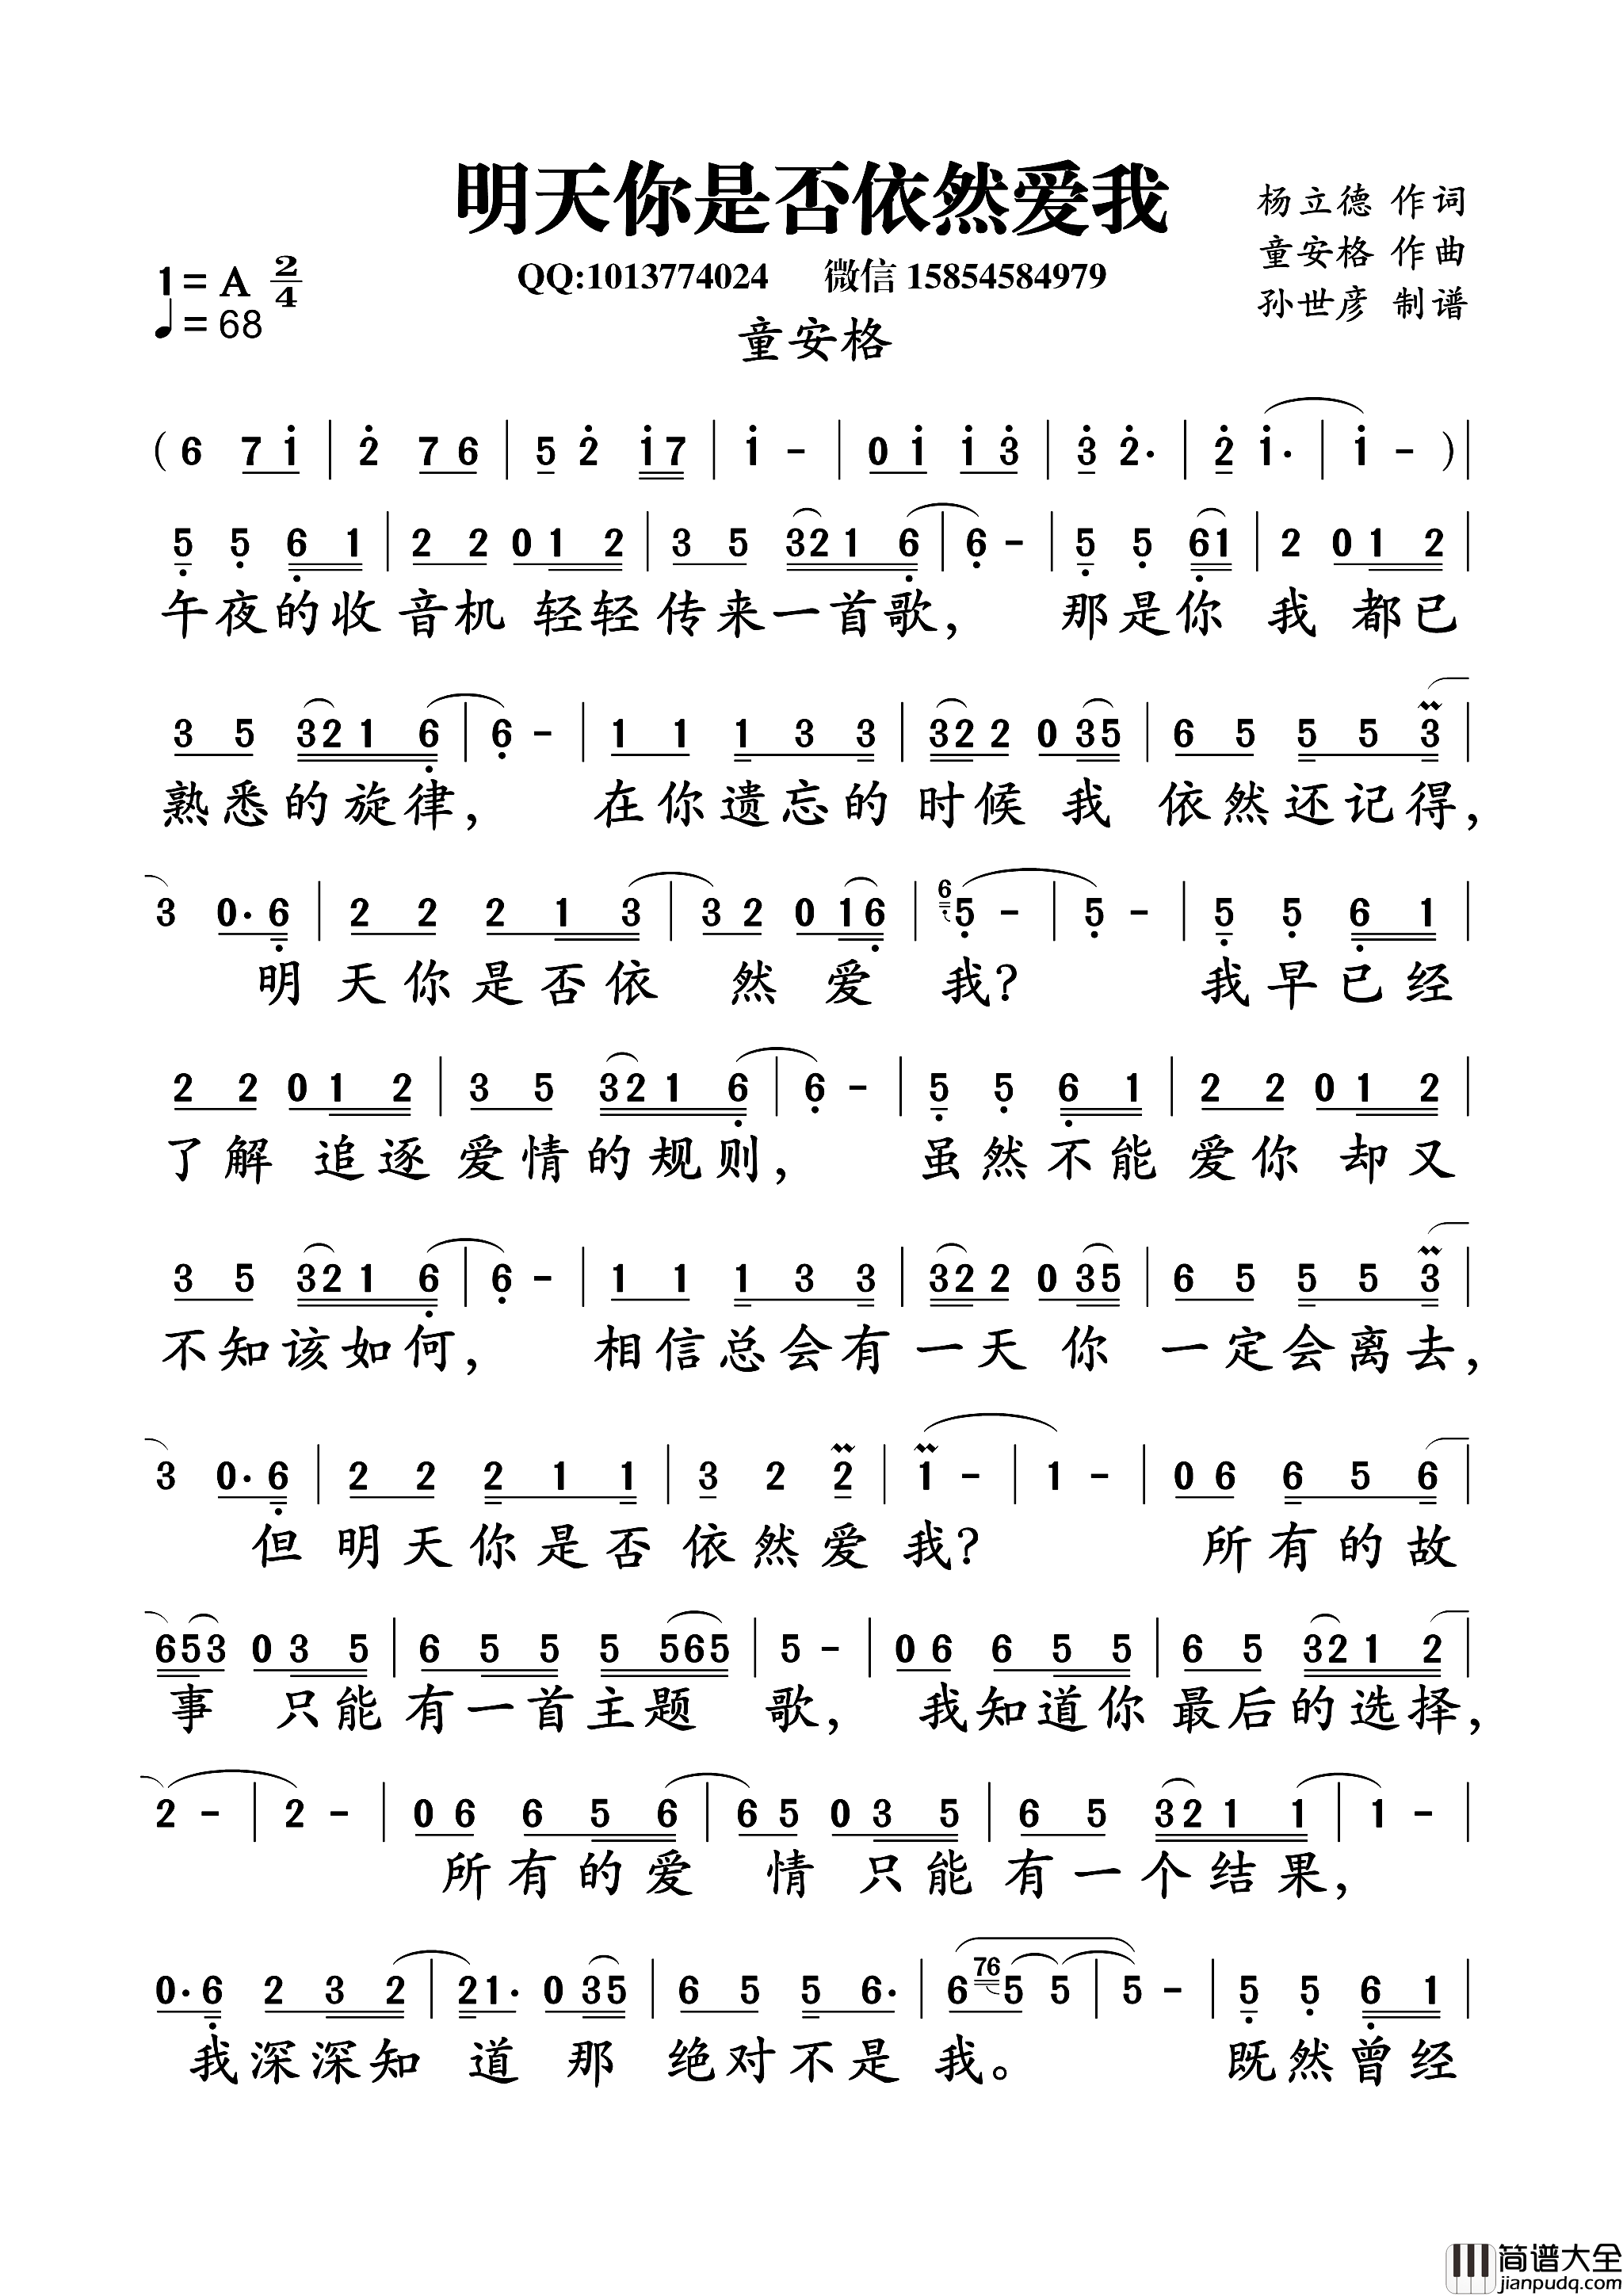 明天你是否依然爱我
杨立德 作词
童安格 作曲
孙世彦 制谱
1= A 2/4
♩= 68
QQ:1013774024 微信 15854584979
童安格
( 6 7 1 | 2 7 6 | 5 2 1 7 | 1 - | 0 1 1 3 | 3 2. | 2 1. | 1 - ) |
5 5 6 1 | 2 2 0 1 2 | 3 5 3 2 1 6 | 6 - | 5 5 6 1 | 2 0 1 2 |
午夜的收音机 轻轻传来一首歌, 那是你 我 都已
3 5 3 2 1 6 | 6 - | 1 1 1 3 3 | 3 2 2 0 3 5 | 6 5 5 5 3 |
熟悉的旋律, 在你遗忘的时候 我 依然还记得,
3 0. 6 | 2 2 2 1 3 | 3 2 0 1 6 | 6 5 - | 5 - | 5 5 6 1 |
明 天你是否依 然 爱 我? 我早已经
2 2 0 1 2 | 3 5 3 2 1 6 | 6 - | 5 5 6 1 | 2 2 0 1 2 |
了解 追逐爱情的规则, 虽然不能爱你 却又
3 5 3 2 1 6 | 6 - | 1 1 1 3 3 | 3 2 2 0 3 5 | 6 5 5 5 3 |
不知该如何, 相信总会有一天你 一定会离去,
3 0. 6 | 2 2 2 1 1 | 3 2 2 | 1 - | 1 - | 0 6 6 5 6 |
但 明天你是否 依然爱 我? 所有的故
6 5 3 0 3 5 | 6 5 5 5 5 6 5 | 5 - | 0 6 6 5 5 | 6 5 3 2 1 2 |
事 只能有一首主题 歌, 我知道你最后的选择,
2 - | 2 - | 0 6 6 5 6 | 6 5 0 3 5 | 6 5 3 2 1 1 | 1 - |
所有的爱 情 只能有一个结果,
0. 6 2 3 2 | 2 1. 0 3 5 | 6 5 5 6. | 6 7 6 5 5 | 5 - | 5 5 6 1 |
我深深知 道 那 绝对不是 我。 既然曾经
简谱大全
jianpudq.com